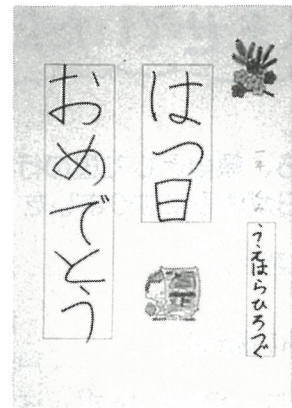 一年 くみ
うえはらひろつぐ
はつ日
おめでとう